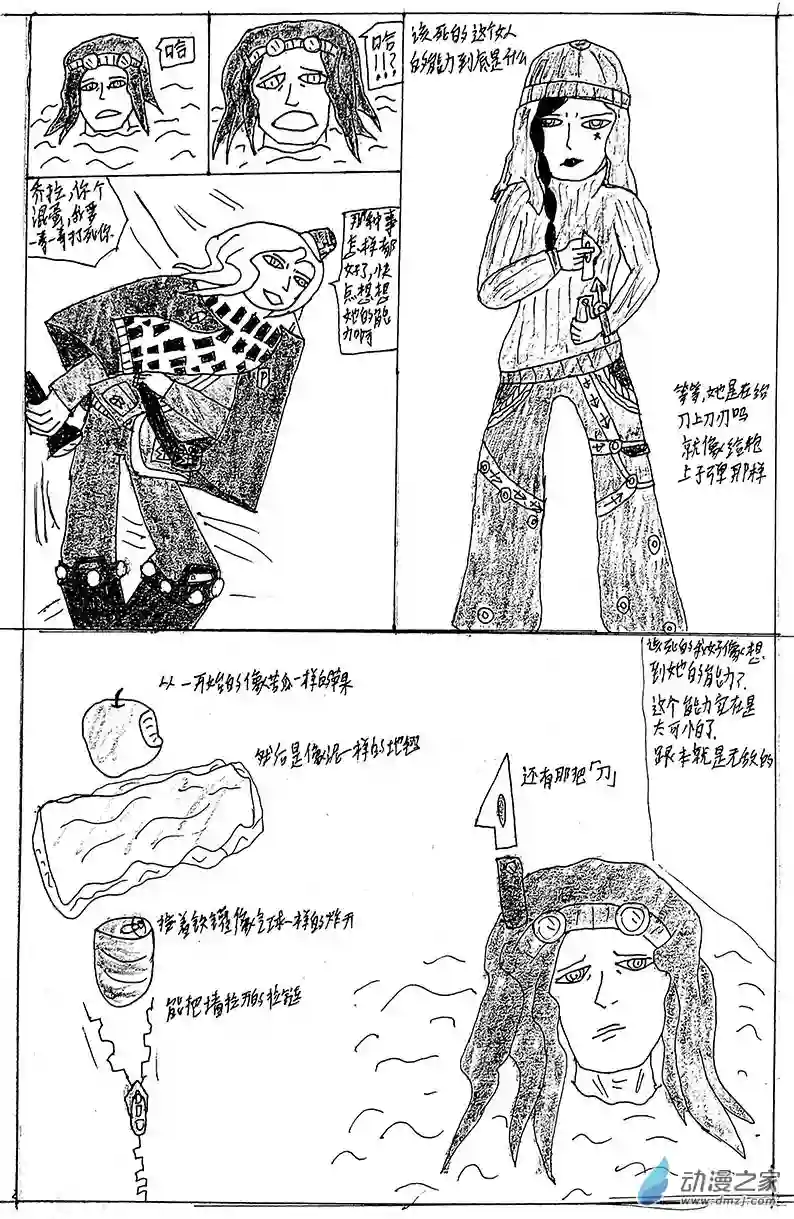 哈
哈
!!?
该死的这个女人
的能力到底是什么
乔拉,你个
混蛋,我要
一毒一毒打死你
那种事
怎样都
好了,快
点想想
她的能
力啊
等等,她是在给
刀上刀刃吗
就像给枪
上子弹那样
从一开始的像苦瓜一样的苹果
然后是像泥一样的地
接着铁罐像气球一样的炸开
能把墙拉开的拉链
还有那把「刀」
该死的我好像想
到她的能力了.
这个能力实在是
太可怕了.
跟本就是无敌的
动漫之家
www.dmzj.com